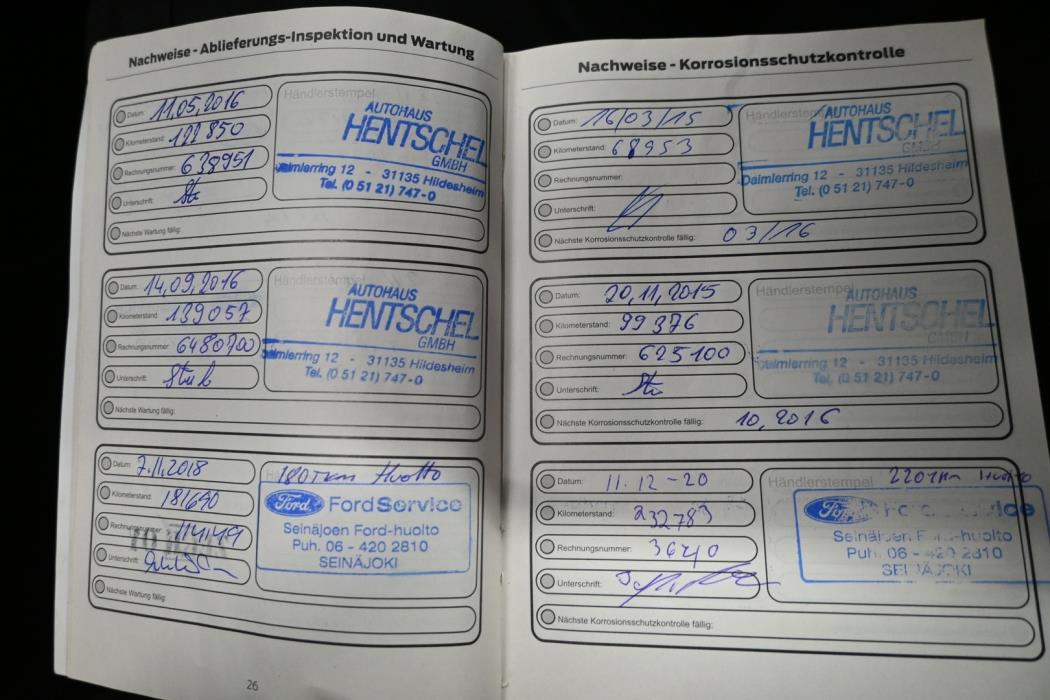 Nachweise - Ablieferungs-Inspektion und Wartung
Datum: 11.05.2016
Kilometerstand: 121 850
Rechnungsnummer: 638951
Unterschrift:
Nächste Wartung fällig:
Händlerstempel
AUTOHAUS
HENTSCHEL
GMBH
Daimlerring 12 - 31135 Hildesheim
Tel. (0 51 21) 747-0
Datum: 14.09.2016
Kilometerstand: 139057
Rechnungsnummer: 6480700
Unterschrift:
Nächste Wartung fällig:
Händlerstempel
AUTOHAUS
HENTSCHEL
GMBH
Daimlerring 12 - 31135 Hildesheim
Tel. (0 51 21) 747-0
Datum: 7.11.2018
Kilometerstand: 181690
Rechnungsnummer: 114149
Unterschrift:
Nächste Wartung fällig:
180Tkm Huolto
Ford FordService
Seinäjoen Ford-huolto
Puh. 06 - 420 2810
SEINÄJOKI
26
Nachweise - Korrosionsschutzkontrolle
Datum: 16/03/15
Kilometerstand: 68953
Rechnungsnummer:
Unterschrift:
Nächste Korrosionsschutzkontrolle fällig: 03/16
Händlerstempel
AUTOHAUS
HENTSCHEL
GMBH
Daimlerring 12 - 31135 Hildesheim
Tel. (0 51 21) 747-0
Datum: 20.11.2015
Kilometerstand: 99376
Rechnungsnummer: 625100
Unterschrift:
Nächste Korrosionsschutzkontrolle fällig: 10.2016
Händlerstempel
AUTOHAUS
HENTSCHEL
GMBH
Daimlerring 12 - 31135 Hildesheim
Tel. (0 51 21) 747-0
Datum: 11.12-20
Kilometerstand: 232783
Rechnungsnummer:
Unterschrift:
Nächste Korrosionsschutzkontrolle fällig:
Händlerstempel 220Tkm Huolto
Ford FordService
Seinäjoen Ford-huolto
Puh. 06 - 420 2810
SEINÄJOKI